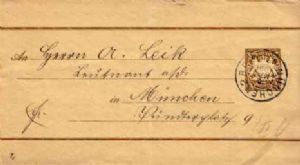 An Herrn A. Leik
Leutnant a/D
in München
fr. Pündterplatz 9